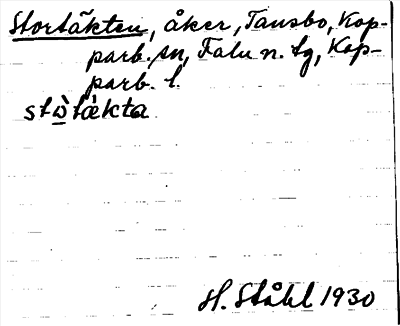 Stortäkten, åker, Tansbo, Kop-
parb. sn, Falu n. tg, Kop-
parb. l.
stò̱tàkta
H. Ståhl 1930